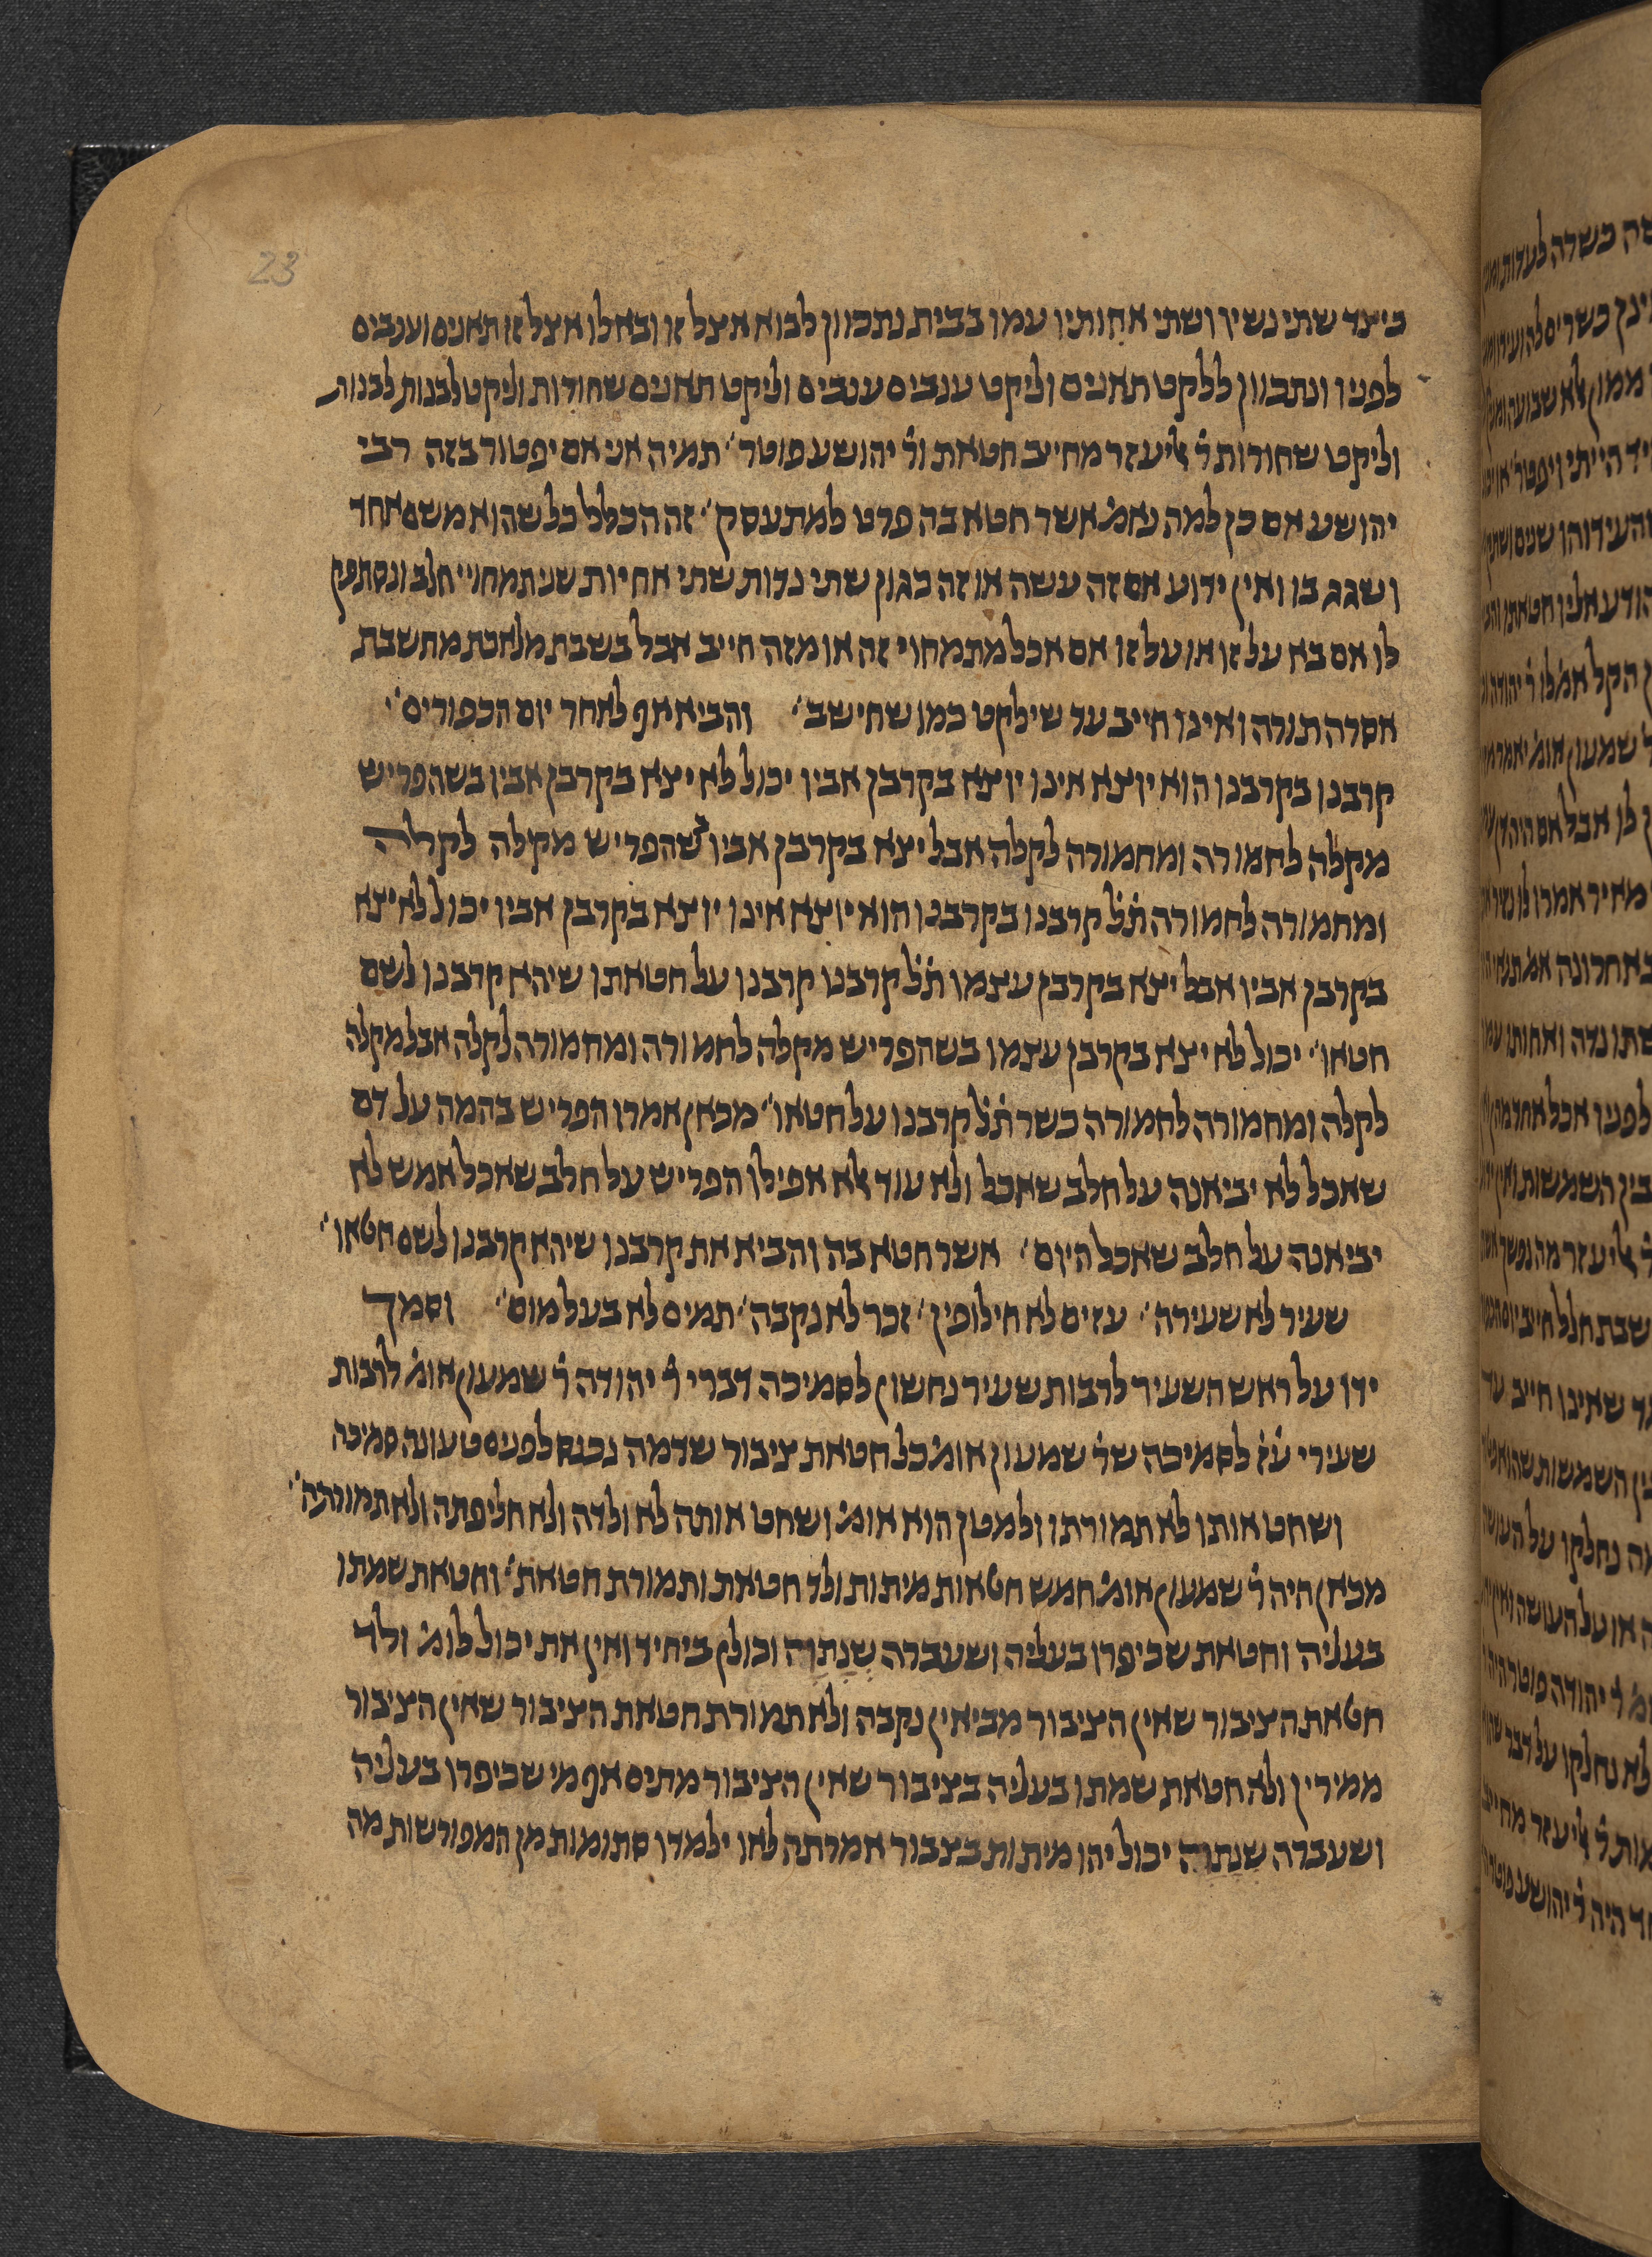 23
כיצד שתי נשיו ושתי אחותיו עמו בבית נתכוון לבוא אצל זו ובא לו אצל זו תאנים וענבים
לפניו ונתכוון ללקט תאנים וליקט ענבים ענבים וליקט תאנים שחורות וליקט לבנות לבנות
וליקט שחורות ר׳ אליעזר מחייב חטאת ור׳ יהושע פוטר׳ תמיה אני אם יפטור בזה רבי
יהושע אם כן למה נאמ׳ אשר חטא בה פרט למתעסק׳ זה הכלל כל שהוא משם אחד
ושגג בו ואין ידוע אם זה עשה או זה כגון שתי נדות שתי אחיות שני תמחויי חלב ונסתפק
לו אם בא על זו או על זו אם אכל מתמחוי זה או מזה חייב אבל בשבת מלאכת מחשבת
אסרה תורה ואינו חייב עד שילקט כמו שחישב׳ והביא אף לאחר יום הכפורים׳
קרבנו בקרבנו הוא יוצא אינו יוצא בקרבן אביו יכול לא יצא בקרבן אביו בשהפריש
מקלה לחמורה ומחמורה לקלה אבל יצא בקרבן אביו כשהפריש מקילה לקלה
ומחמורה לחמורה ת׳ל׳ קרבנו בקרבנו הוא יוצא אינו יוצא בקרבן אביו יכול לא יצא
בקרבן אביו אבל יצא בקרבן עצמו ת׳ל׳ קרבנו קרבנו על חטאתו שיהא קרבנו לשם
חטאו׳ יכול לא יצא בקרבן עצמו בשהפריש מקלה לחמורה ומחמורה לקלה אבל מקלה
לקלה ומחמורה לחמורה כשר ת׳ל׳ קרבנו על חטאו׳ מכאן אמרו הפריש בהמה על דם
שאכל לא יביאנה על חלב שאכל ולא עוד אלא אפילו הפריש על חלב שאכל אמש לא
יביאנה על חלב שאכל היום׳ אשר חטא בה והביא את קרבנו שיהא קרבנו לשם חטאו׳
שעיר לא שעירה׳ עזים לא חילופין׳ זכר לא נקבה׳ תמים לא בעל מום׳ וסמך
ידו על ראש השעיר לרבות שעיר נחשון לסמיכה דברי ר׳ יהודה ר׳ שמעון אומ׳ לרבות
שעירי ע׳ז׳ לסמיכה שר׳ שמעון אומ׳ כל חטאת ציבור שדמה נכנס לפנים טעונה סמיכה
ושחט אותו לא תמורתו ולמטן הוא אומ׳ ושחט אותה לא ולדה ולא חליפתה ולא תמורתה׳
מכאן היה ר׳ שמעון אומ׳ חמש חטאות מיתות ולד חטאת ותמורת חטאת׳ וחטאת שמתו
בעליה וחטאת שכיפרו בעליה ושעברה שנתה וכולן ביחיד ואין את יכול לומ׳ ולד
חטאת הציבור שאין הציבור מביאין נקבה ולא תמורת חטאת הציבור שאין הציבור
ממירין ולא חטאת שמתו בעליה בציבור שאין הציבור מתים אף מי שכיפרו בעליה
ושעברה שנתה יכול יהו מיתות בצבור אמרתה לאו ילמדו סתומות מן המפורשות מה